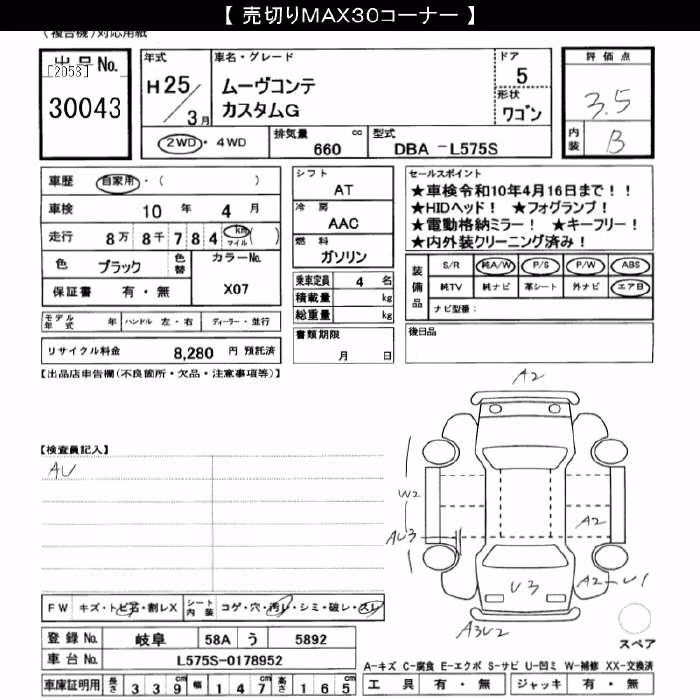 【 売切りMAX30コーナー 】
(複合機)対応用紙
出品No.
[2053]
30043
年式
H25/3月
車名・グレード
ムーヴコンテ
カスタムG
ドア
5
形状
ワゴン
評価点
3.5
内装
B
2WD・4WD
排気量 cc
660
型式
DBA -L575S
車歴 自家用・( )
車検 10 年 4 月
走行 8万 8千 7 8 4 km マイル ( )
色 ブラック 色替
カラーNo.
X07
保証書 有・無
シフト
AT
冷房
AAC
燃料
ガソリン
乗車定員 4 名
積載量 kg
総重量 kg
書類期限
月 日
セールスポイント
★車検令和10年4月16日まで!!
★HIDヘッド! ★フォグランプ!
★電動格納ミラー! ★キーフリー!
★内外装クリーニング済み!
装備品
S/R 純A/W P/S P/W ABS
純TV 純ナビ 革シート 外ナビ エアB
ナビ型番:
後日品
モデル年式 年 ハンドル 左・右 ディーラー・並行
リサイクル料金 8,280 円 預託済
【出品店申告欄(不良箇所・欠品・注意事項等)】
【検査員記入】
AU
A2
W2
AU3
A2
U3
A2
U1
A3U2
スペア
FW キズ・トビ石・割レX シート内装 コゲ・穴・汚レ・シミ・破レ・スレ
登録No. 岐阜 58A う 5892
車台No. L575S-0178952
車庫証明用 長さ 339 幅 147 高さ 165
A-キズ C-腐食 E-エクボ S-サビ U-凹ミ W-補修 XX-交換済
工具 有・無 ジャッキ 有・無